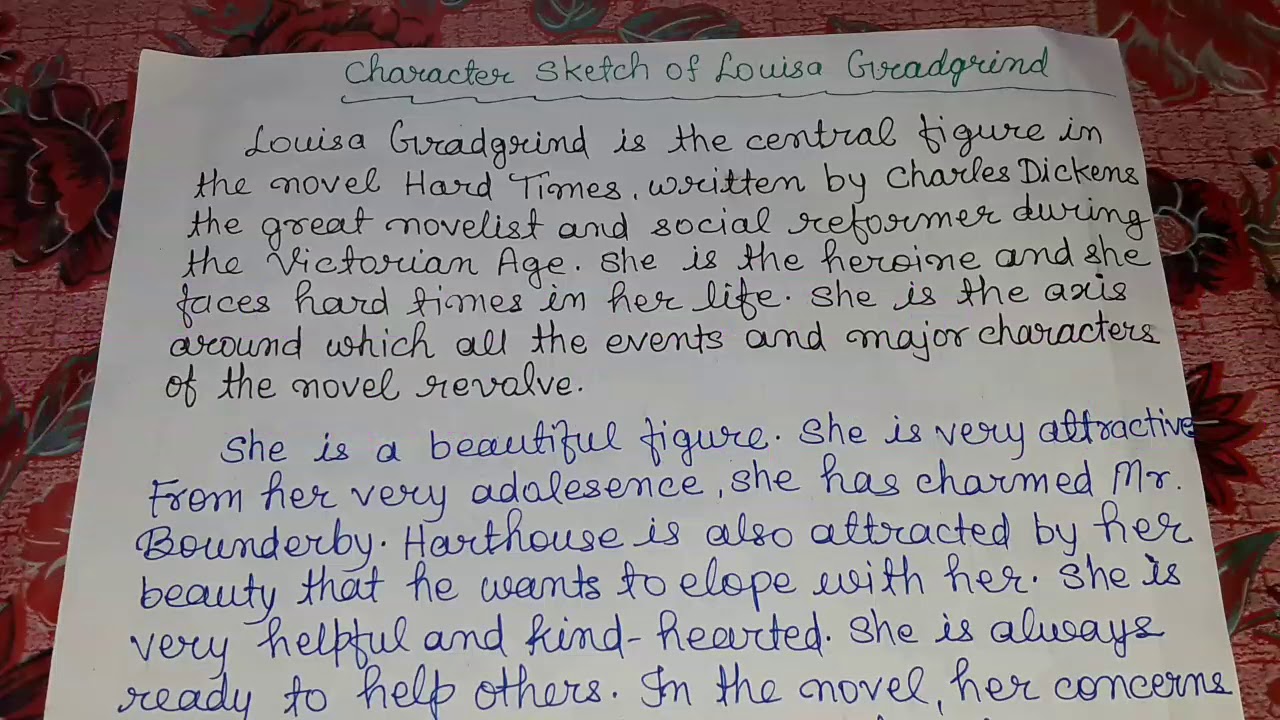 Character Sketch of Louisa Gradgrind
Louisa Gradgrind is the central figure in
the novel Hard Times, written by Charles Dickens
the great novelist and social reformer during
the Victorian Age. She is the heroine and she
faces hard times in her life. She is the axis
around which all the events and major characters
of the novel revalve.
She is a beautiful figure. She is very attractive
From her very adalesence, she has charmed Mr.
Bounderby. Harthouse is also attracted by her
beauty that he wants to elope with her. She is
very helpful and kind-hearted. She is always
ready to help others. In the novel, her concerns